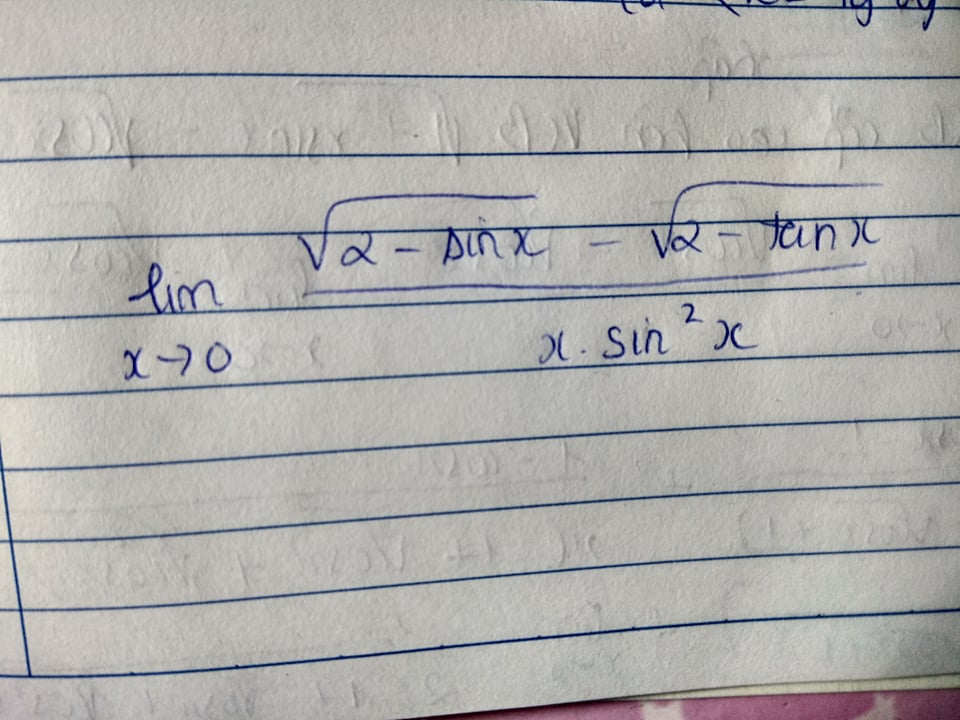 lim x→0 (√(2 - sin x) - √(2 - tan x)) / (x · sin² x)